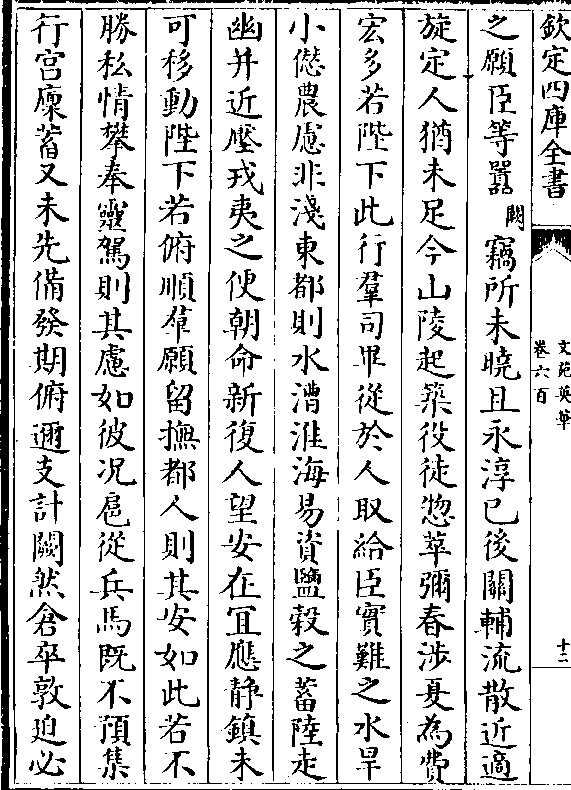 欽定四庫全書
文苑英華
卷六百
十二
之願臣等嚚闕竊所未曉且永淳已後關輔流散近適
旋定人猶未足今山陵起築役徒惣萃彌春涉夏為費
宏多若陛下此行羣司畢從於人取給臣實難之水旱
小僽農慮非淺東都則水漕淮海易資鹽榖之蓄陸走
幽并近壓戎夷之便朝命新復人望安在冝應静鎮未
可移動陛下若俯順羣願留撫都人則其安如此若不
勝私情攀奉靈駕則其慮如彼况扈從兵馬既不預集
行宫廩蓄又未先備發期俯邇支計闕然倉卒敦迫必